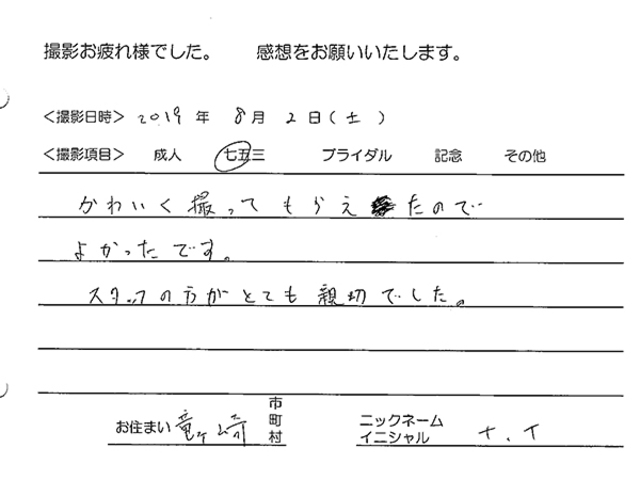 撮影お疲れ様でした。 感想をお願いいたします。
<撮影日時> 2019 年 8 月 2 日(土)
<撮影項目> 成人 七五三 ブライダル 記念 その他
かわいく撮ってもらえたので
よかったです。
スタッフの方がとても親切でした。
お住まい 竜ヶ崎 市町村 ニックネーム イニシャル